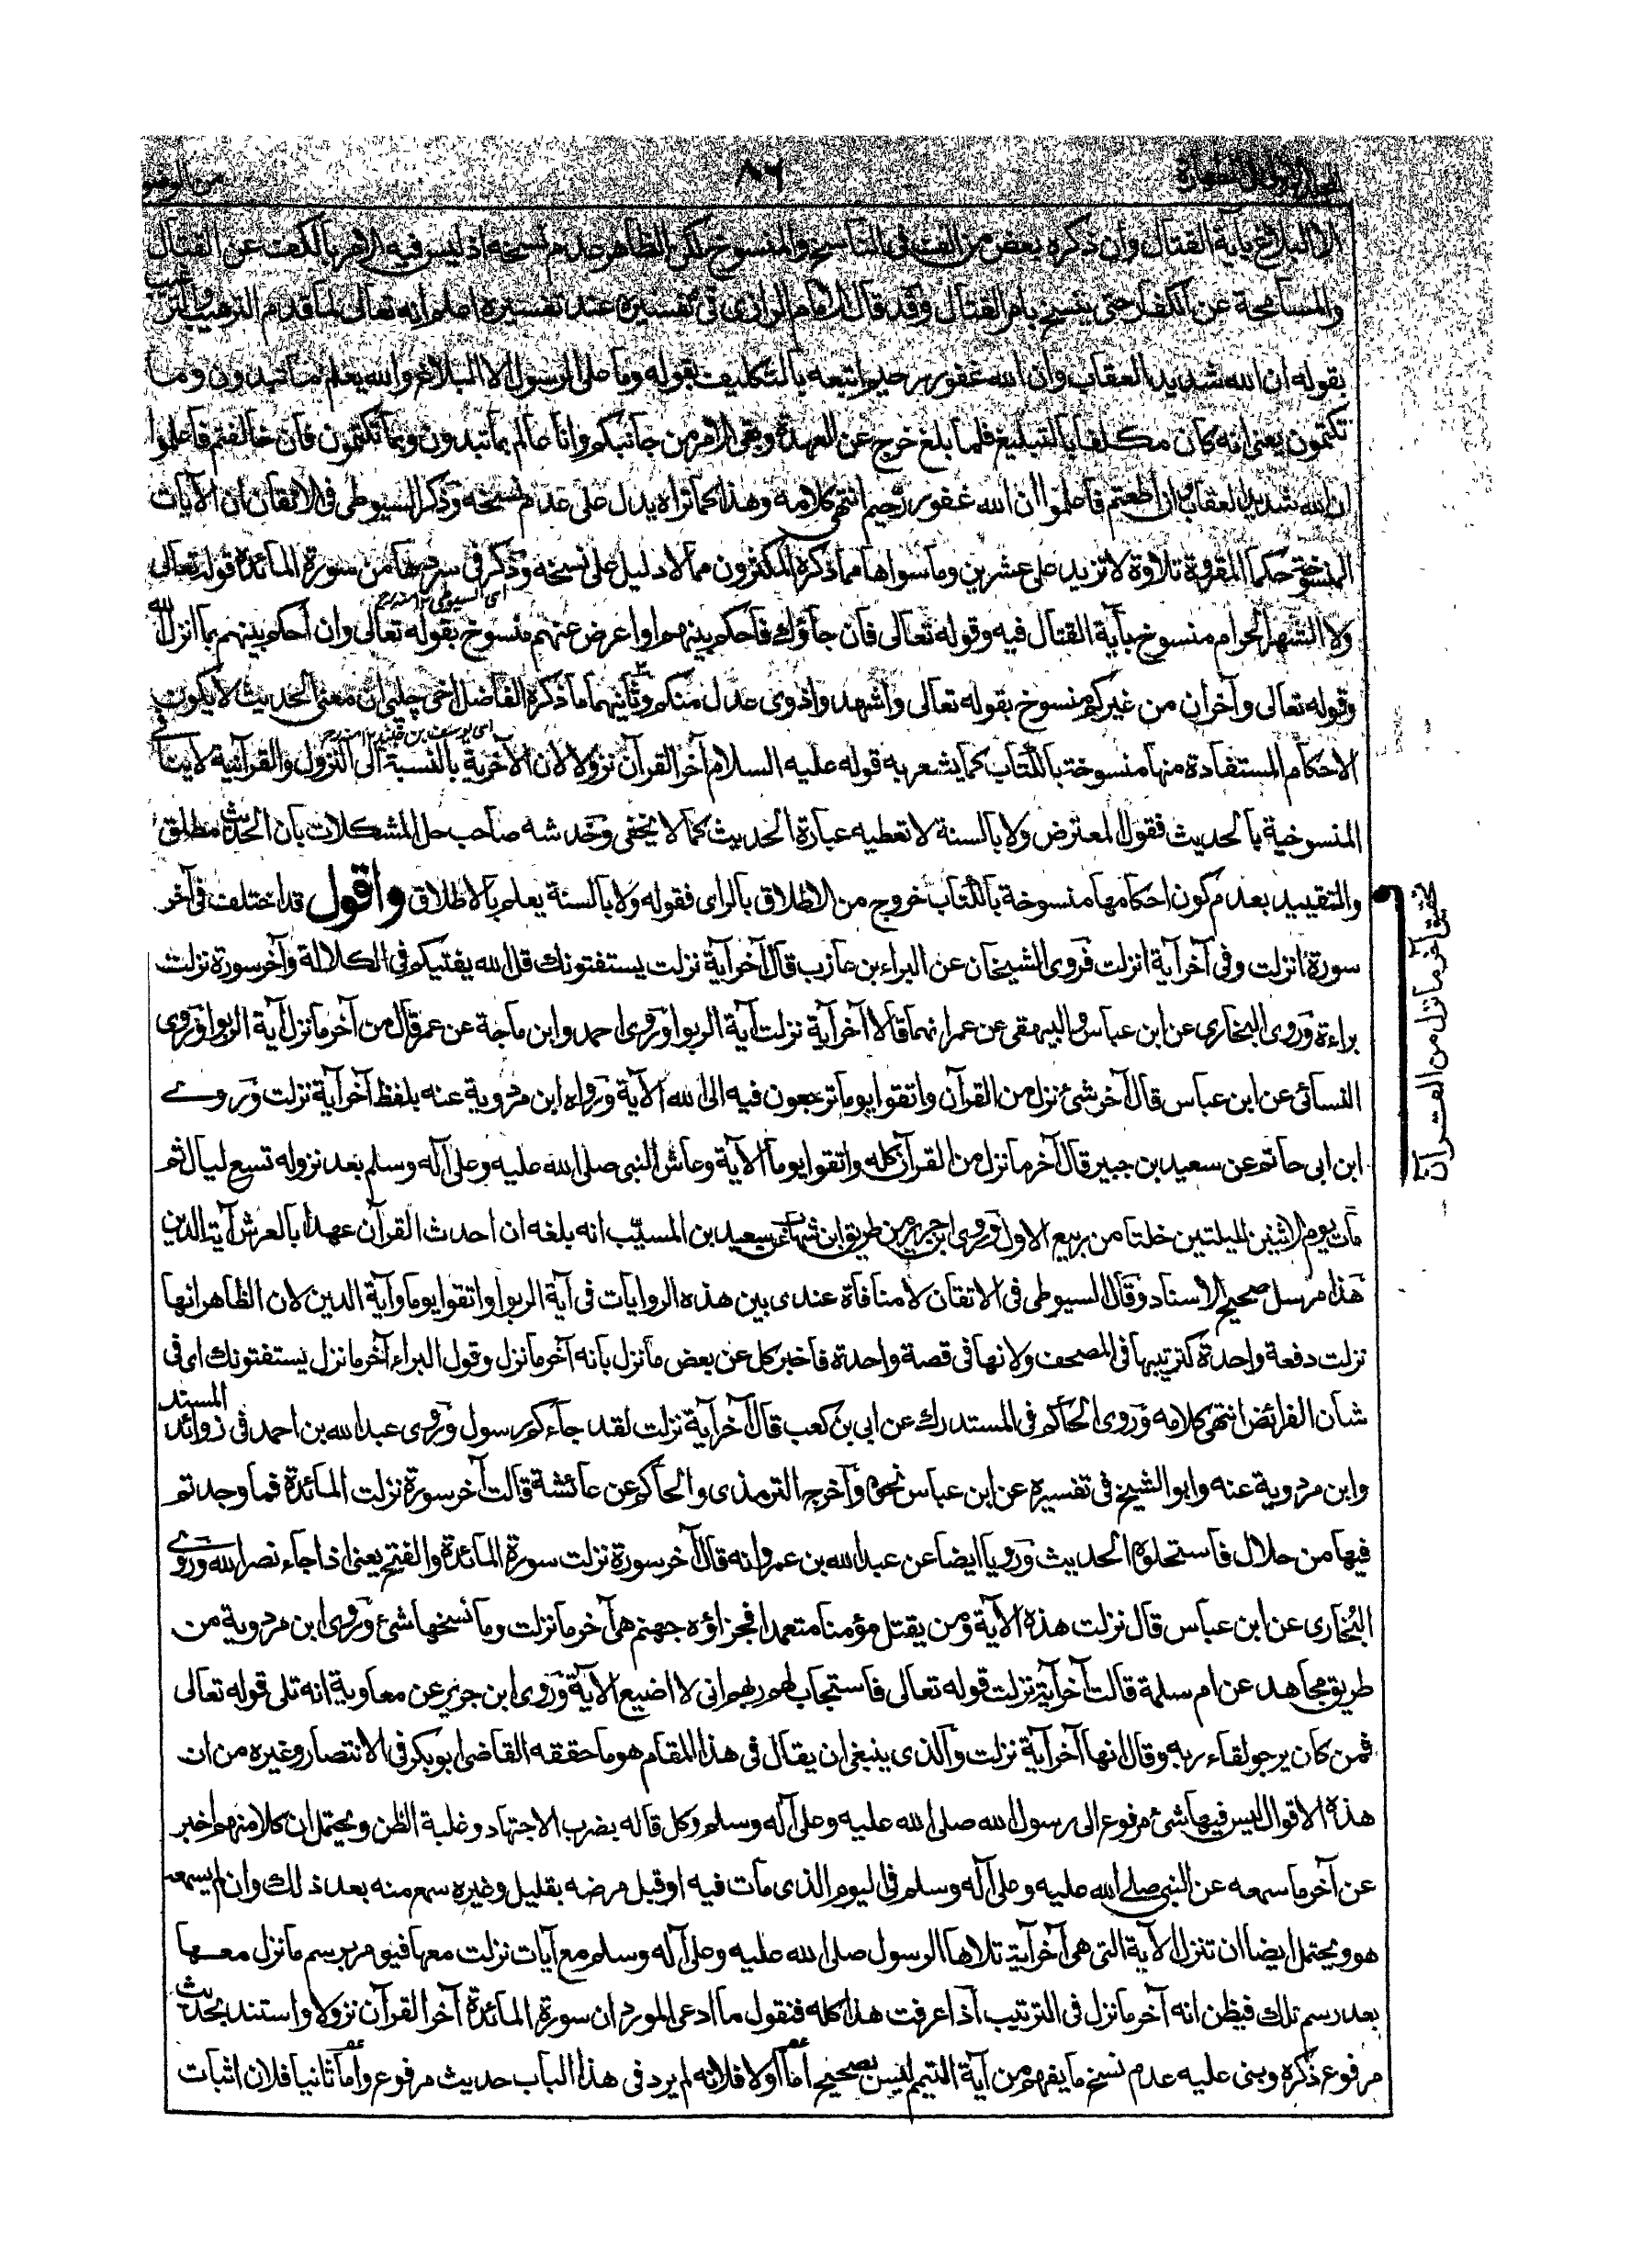 ٨٦
الا البلاغ بآية القتال وان ذكره بعض من الف فى الناسخ والمنسوخ لكن الظاهر عدم نسخه اذ ليس فيه امر بالكف عن القتال
والمسامحة عن الكفار حتى ينسخ بامر القتال وقد قال الامام الرازى فى تفسيره عند تفسيره اعلم انه تعالى لما قدم الترهيب والترغيب
بقوله ان الله شديد العقاب وان الله غفور رحيم اتبعه بالتكليف بقوله وما على الرسول الا البلاغ والله يعلم ما تبدون وما
تكتمون يعنى انه كان مكلفا بالتبليغ فلما بلغ خرج عن العهدة وبقى الامر من جانبكم وانا عالم بما تبدون وبما تكتمون فان خالفتم فاعلموا
ان الله شديد العقاب وان اطعتم فاعلموا ان الله غفور رحيم انتهى كلامه وهذا كما تراه يدل على عدم نسخه وذكر السيوطى فى الاتقان ان الآيات
المنسوخة حكما المقروة تلاوة لا تزيد على عشرين وما سواها مما ذكره المكثرون مما لا دليل على نسخه وذكر فى سردها من سورة المائدة قوله تعالى
اى السيوطى ١٢ منه رح
ولا الشهر الحرام منسوخ بآية القتال فيه وقوله تعالى فان جآؤك فاحكم بينهم او اعرض عنهم منسوخ بقوله تعالى وان احكم بينهم بما انزل الله
وقوله تعالى وآخران من غيركم منسوخ بقوله تعالى واشهدوا ذوى عدل منكم وثانيهما ما ذكره الفاضل اخى چلپى ان معنى الحديث لا يكون
اى يوسف بن جنيد ١٢ منه رح
الاحكام المستفادة منها منسوخة بالكتاب كما يشعر به قوله عليه السلام آخر القرآن نزولا لان الآخرية بالنسبة الى النزول والقرآنية لا ينافى
المنسوخية بالحديث فقول المعترض ولا بالسنة لا تعطيه عبارة الحديث كما لا يخفى وخدشه صاحب حل المشكلات بان الحديث مطلق
والتقييد بعدم كون احكامها منسوخة بالكتاب خروج من الاطلاق بالراى فقوله ولا بالسنة يعلم بالاطلاق واقول قد اختلف فى آخر
سورة انزلت وفى آخر آية انزلت فروى الشيخان عن البراء بن عازب قال آخر آية نزلت يستفتونك قل الله يفتيكم فى الكلالة وآخر سورة نزلت
براءة وروى البخارى عن ابن عباس والبيهقى عن عمر انهما قالا آخر آية نزلت آية الربوا وروى احمد وابن ماجة عن عمر قال من آخر ما نزل آية الربوا وروى
النسائى عن ابن عباس قال آخر شئ نزل من القرآن واتقوا يوما ترجعون فيه الى الله الآية ورواه ابن مردوية عنه بلفظ آخر آية نزلت وروى
ابن ابى حاتم عن سعيد بن جبير قال آخر ما نزل من القرآن كله واتقوا يوما الآية وعاش النبى صلى الله عليه وعلى آله وسلم بعد نزوله تسع ليال ثم
مات يوم الاثنين لليلتين خلتا من ربيع الاول وروى ابن جرير من طريق ابن شهاب عن سعيد بن المسيّب انه بلغه ان احدث القرآن عهدا بالعرش آية الدين
هذا مرسل صحيح الاسناد وقال السيوطى فى الاتقان لا منافاة عندى بين هذه الروايات فى آية الربوا واتقوا يوما وآية الدين لان الظاهر انها
نزلت دفعة واحدة كترتيبها فى المصحف ولانها فى قصة واحدة فاخبر كل عن بعض ما نزل بانه آخر ما نزل وقول البراء آخر ما نزل يستفتونك اى فى
شان الفرائض انتهى كلامه وروى الحاكم فى المستدرك عن ابى بن كعب قال آخر آية نزلت لقد جاءكم رسول وروى عبد الله بن احمد فى زوائد المسند
وابن مردوية عنه وابو الشيخ فى تفسيره عن ابن عباس نحوه وآخرج الترمذى والحاكم عن عائشة قالت آخر سورة نزلت المائدة فما وجدتم
فيها من حلال فاستحلوه الحديث ورويا ايضا عن عبد الله بن عمرو انه قال آخر سورة نزلت سورة المائدة والفتح يعنى اذا جاء نصر الله وروى
البخارى عن ابن عباس قال نزلت هذه الآية ومن يقتل مؤمنا متعمدا فجزاؤه جهنم هى آخر ما نزلت وما نسخها شئ وروى ابن مردوية من
طريق مجاهد عن ام سلمة قالت آخر آية نزلت قوله تعالى فاستجاب لهم ربهم انى لا اضيع الآية وروى ابن جرير عن معاوية انه تلى قوله تعالى
فمن كان يرجو لقاء ربه وقال انها آخر آية نزلت والذى ينبغى ان يقال فى هذا المقام هو ما حققه القاضى ابو بكر فى الانتصار وغيره من ان
هذه الاقوال ليس فيها شئ مرفوع الى رسول الله صلى الله عليه وعلى آله وسلم وكل قاله بضرب الاجتهاد وغلبة الظن ويحتمل ان كلا منهم اخبر
عن آخر ما سمعه عن النبى صلى الله عليه وعلى آله وسلم فى اليوم الذى مات فيه او قبل مرضه بقليل وغيره سمع منه بعد ذلك وان لم يسمعه
هو ويحتمل ايضا ان تنزل الآية التى هى آخر آية تلاها الرسول صلى الله عليه وعلى آله وسلم مع آيات نزلت معها فيومر برسم ما نزل معها
بعد رسم تلك فيظن انه آخر ما نزل فى الترتيب اذا عرفت هذا كله فنقول ما ادعى المورد ان سورة المائدة آخر القرآن نزولا واستند بحديث
مرفوع ذكره وبنى عليه عدم نسخ ما يفهم من آية التيمم ليس بصحيح اما اولا فلانه لم يرد فى هذا الباب حديث مرفوع واما ثانيا فلان اثبات
تحقيق آخر ما نزل من القرآن